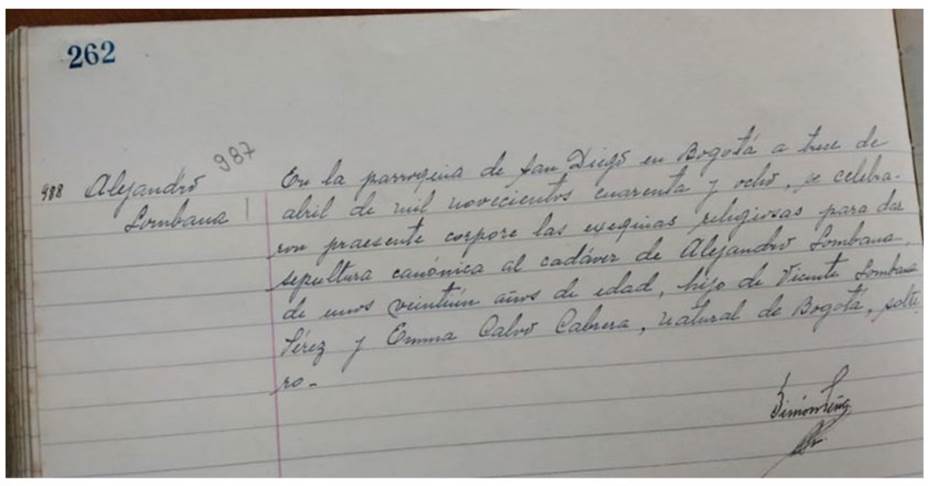 262
987
988 Alejandro
Lombana
En la parroquia de San Diego en Bogotá a trece de
abril de mil novecientos cuarenta y ocho, se celebra-
ron praesente corpore las exequias religiosas para dar
sepultura canónica al cadáver de Alejandro Lombana,
de unos veintiún años de edad, hijo de Vicente Lombana
Pérez y Emma Calvo Cabrera, natural de Bogotá, solte
ro.-
Simón